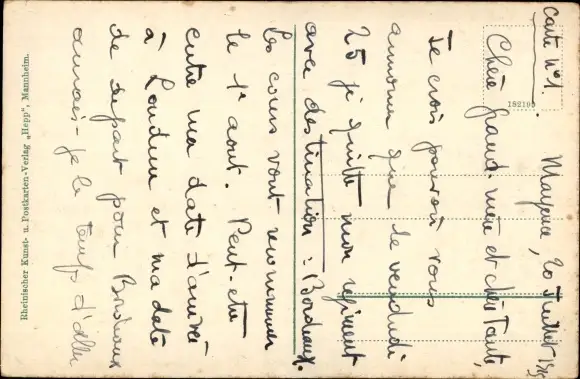 Carte n°1.
Mayence, 20 Juillet
Chère grand-mère et chère Tante,
Je crois pouvoir vous
annoncer que le vendredi
25 je quitte mon régiment
avec destination : Bordeaux.
Les cours vont recommencer
le 1er aout. Peut-etre
entre ma date d'arrivée
à Loudun et ma date
de départ pour Bordeaux
aurai-je le temps d'aller
182199
Rheinischer Kunst- u. Postkarten-Verlag „Hepp", Mannheim.